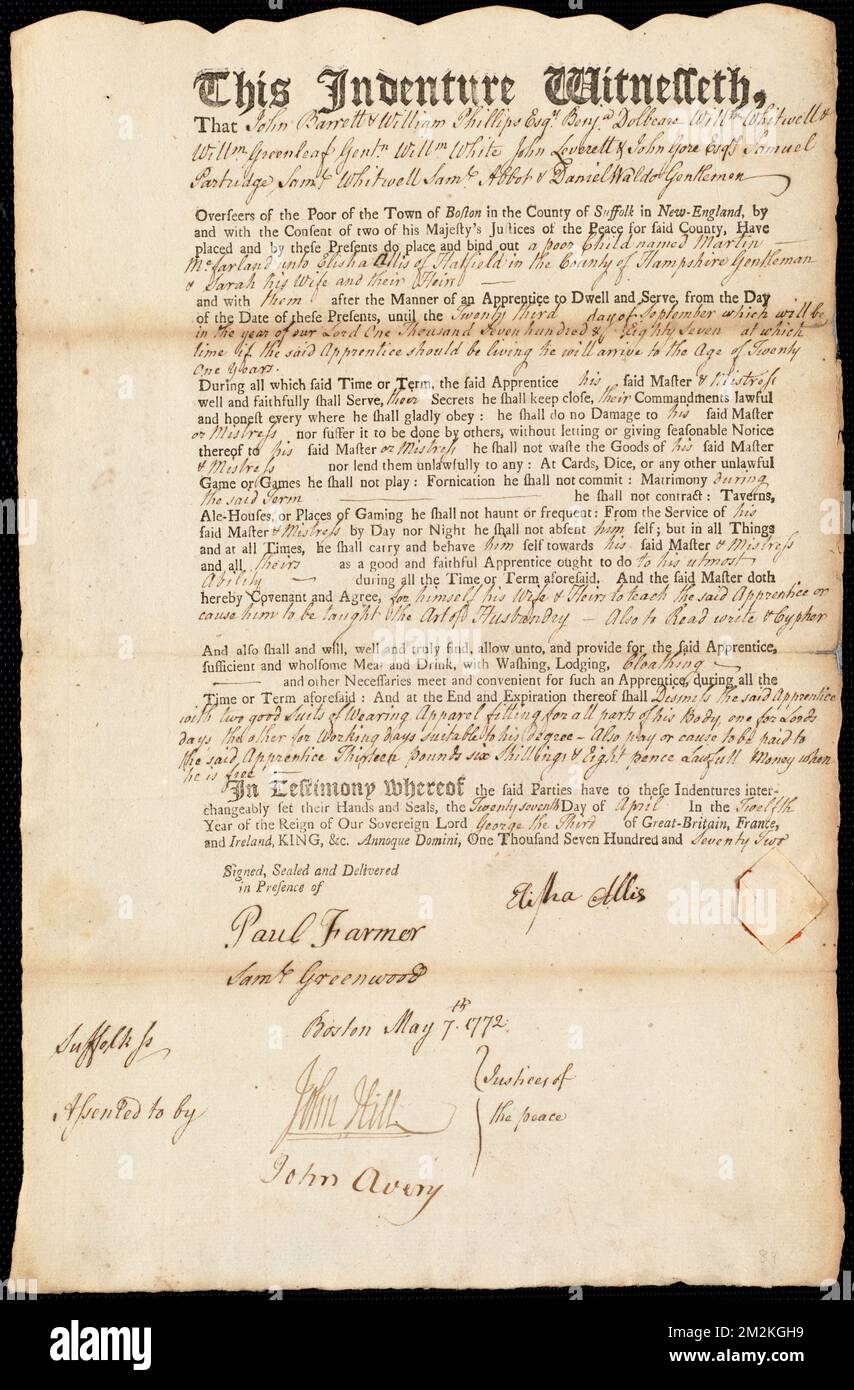 This Indenture Witnesseth,
That John Barrett & William Phillips Esqrs Benja Dolbeare Willm Whitwell &
Willm Greenleaf Gentn Willm White John Leverett & John Gore Esqrs Samuel
Partridge, Saml Whitwell Saml Abbot & Daniel Waldo Gentlemen
Overseers of the Poor of the Town of Boston in the County of Suffolk in New-England, by
and with the Consent of two of his Majesty's Justices of the Peace for said County, Have
placed and by these Presents do place and bind out a poor Child named Martin
Mcfarland unto Elisha Allis of Hatfield in the County of Hampshire Gentleman
& Sarah his Wife and their Heirs
and with them after the Manner of an Apprentice to Dwell and Serve, from the Day
of the Date of these Presents, until the Twenty third day of September which will be
in the year of our Lord One Thousand Seven hundred & Eighty Seven at which
time if the said Apprentice should be living he will arrive to the Age of Twenty
One Years.
During all which said Time or Term, the said Apprentice his said Master & Mistress
well and faithfully shall Serve, their Secrets he shall keep close, their Commandments lawful
and honest every where he shall gladly obey: he shall do no Damage to his said Master
or Mistress nor suffer it to be done by others, without letting or giving seasonable Notice
thereof to his said Master or Mistress he shall not waste the Goods of his said Master
& Mistress nor lend them unlawfully to any: At Cards, Dice, or any other unlawful
Game or Games he shall not play: Fornication he shall not commit: Matrimony during
the said Term he shall not contract: Taverns,
Ale-Houses, or Places of Gaming he shall not haunt or frequent: From the Service of his
said Master & Mistress by Day nor Night he shall not absent him self; but in all Things
and at all Times, he shall carry and behave him self towards his said Master & Mistress
and all theirs as a good and faithful Apprentice ought to do to his utmost
Ability during all the Time or Term aforesaid. And the said Master doth
hereby Covenant and Agree, for himself his Wife & Heirs to teach the said Apprentice or
cause him to be taught the Art of Husbandry — Also to Read write & Cypher
And also shall and will, well and truly find, allow unto, and provide for the said Apprentice,
sufficient and wholsome Meat and Drink, with Washing, Lodging, Cloathing
and other Necessaries meet and convenient for such an Apprentice, during all the
Time or Term aforesaid: And at the End and Expiration thereof shall Dismiss the said Apprentice
with two good Suits of Wearing Apparel fitting for all parts of his Body, one for Lords
days the other for Working days suitable to his degree — Also pay or cause to be paid to
the said Apprentice Thirteen pounds six Shillings & Eight pence Lawfull Money when
he is free
In Testimony whereof the said Parties have to these Indentures inter-
changeably set their Hands and Seals, the Twenty seventh Day of April In the Twelfth
Year of the Reign of Our Sovereign Lord George the Third of Great-Britain, France,
and Ireland, KING, &c. Annoque Domini, One Thousand Seven Hundred and Seventy Two
Signed, Sealed and Delivered
in Presence of
Elisha Allis
Paul Farmer
Saml Greenwood
Boston May 7th. 1772
Suffolk ss
Assented to by
John Hill
John Avery
Justices of
the peace
89
alamy
Image ID: 2M2KGH9
www.alamy.com